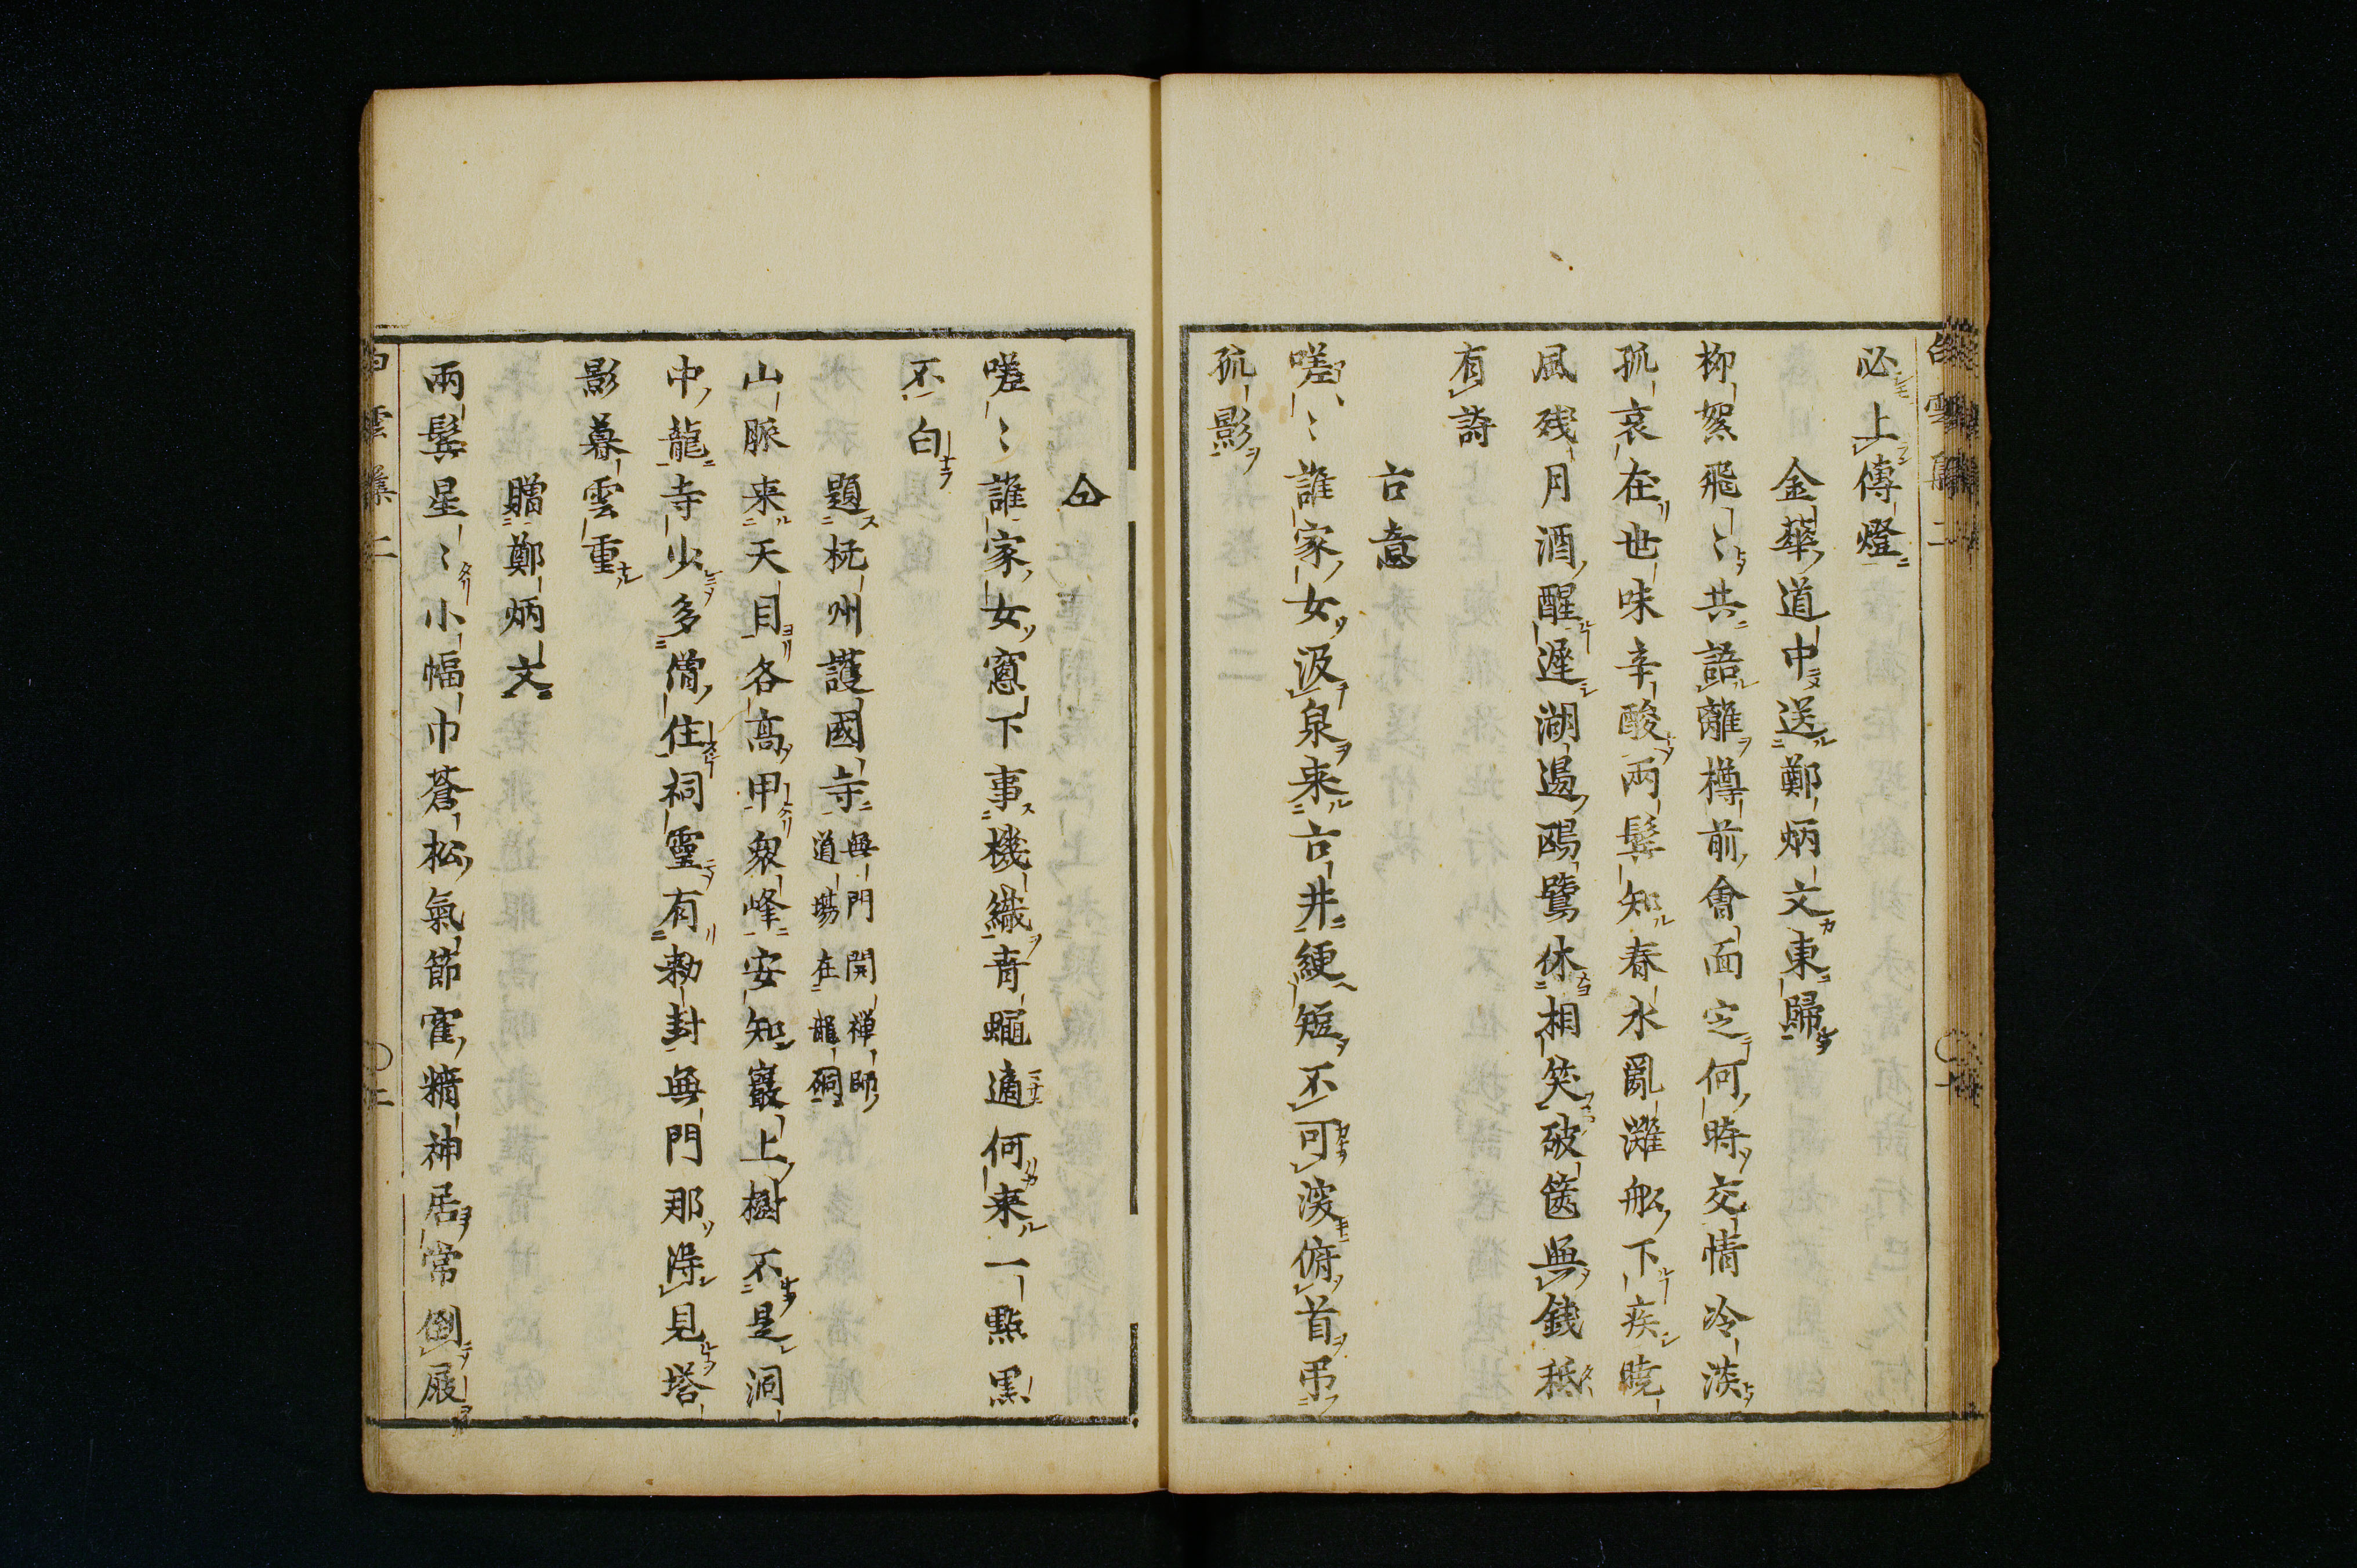 必上傳燈
金華道中送鄭炳文東歸
柳絮飛〻共語離樽前會面定何時交情冷淡
孤哀在世味辛酸兩鬂知春水亂灘船下疾曉
風殘月酒醒遲湖邊鷗鷺休相笑破篋無錢秖
有詩
古意
嗟〻誰家女汲泉来古井綆短不可深俯首弔
孤影
仝
嗟〻誰家女窓下事機織青蠅適何来一點黒
不白
題杭州護國寺 無門開禅師
道場在龍硐
山脈来天目各高甲衆峰安知巖上樹不是洞
中龍寺少多僧住祠靈有勅封無門那得見塔
影暮雲重
贈鄭炳文
兩鬂星〻小幅巾蒼松氣節寉精神居常倒屐
白雲集二